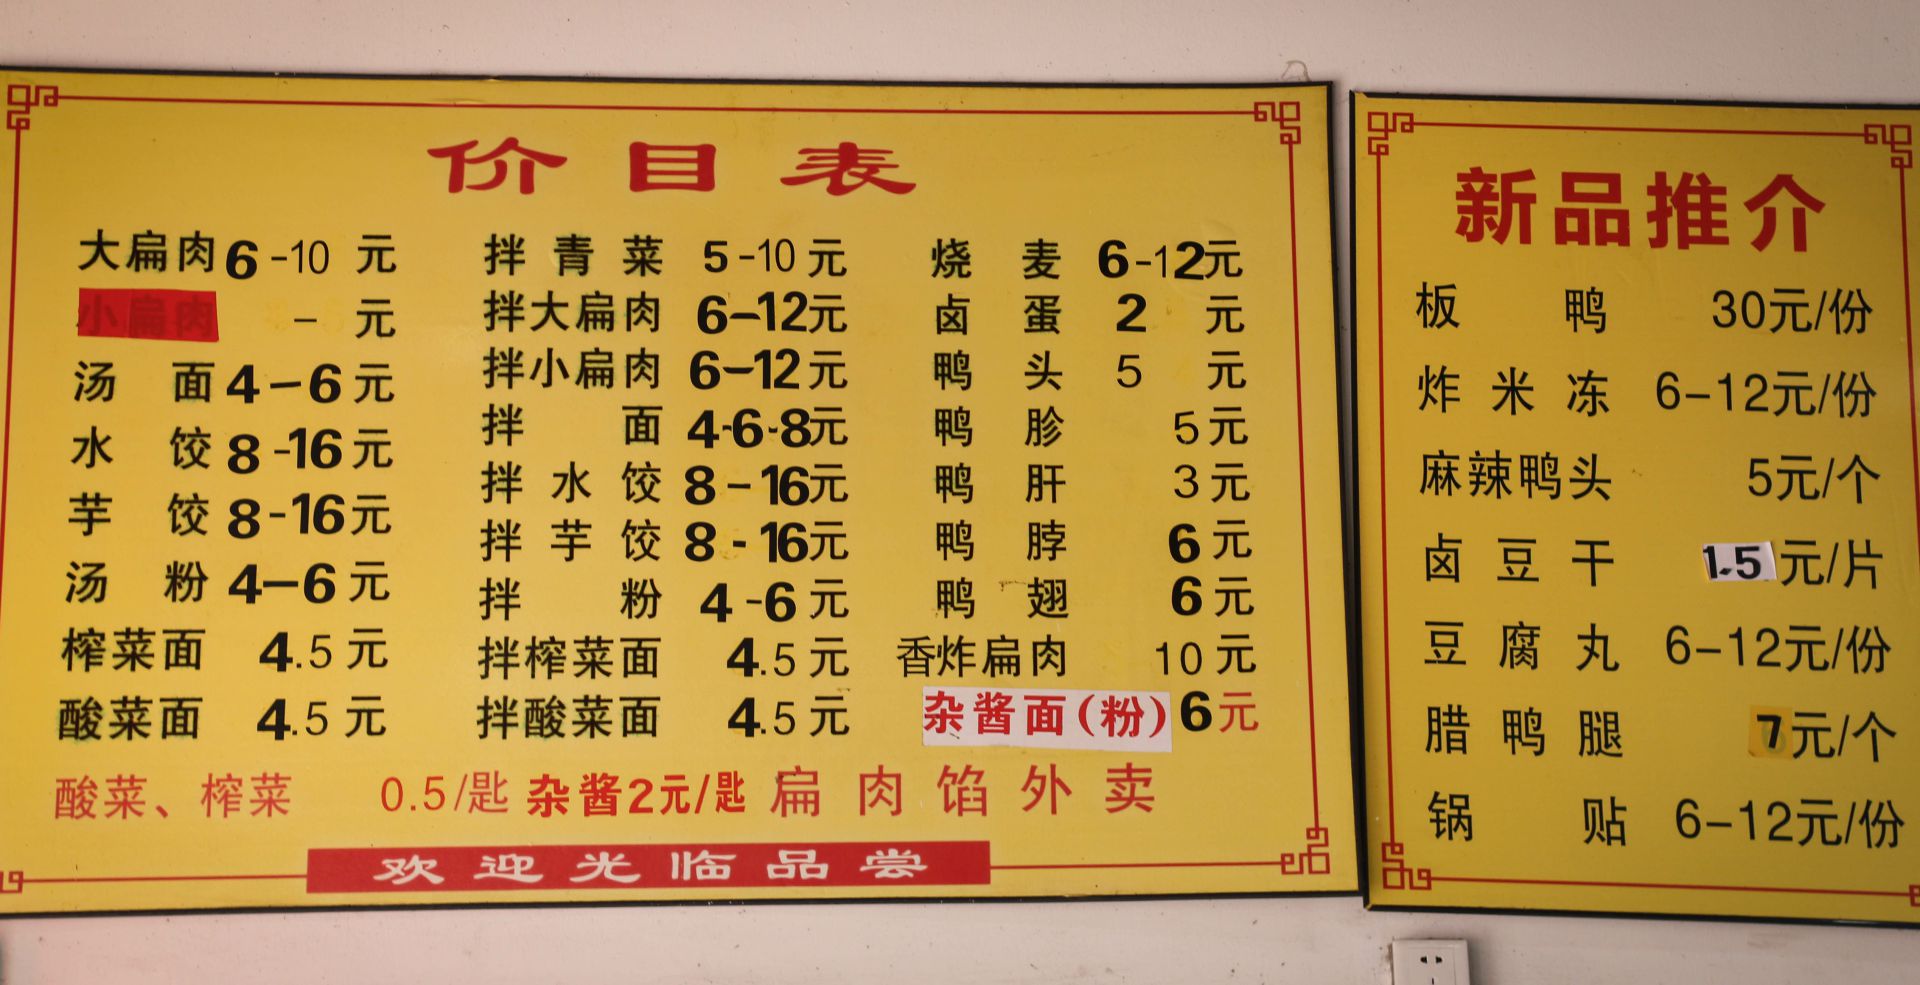 价目表
大扁肉 6-10 元
小扁肉 - 元
汤面 4-6 元
水饺 8-16 元
芋饺 8-16 元
汤粉 4-6 元
榨菜面 4.5 元
酸菜面 4.5 元
拌青菜 5-10 元
拌大扁肉 6-12 元
拌小扁肉 6-12 元
拌面 4-6-8 元
拌水饺 8-16 元
拌芋饺 8-16 元
拌粉 4-6 元
拌榨菜面 4.5 元
拌酸菜面 4.5 元
烧麦 6-12 元
卤蛋 2 元
鸭头 5 元
鸭胗 5 元
鸭肝 3 元
鸭脖 6 元
鸭翅 6 元
香炸扁肉 10 元
杂酱面(粉) 6 元
酸菜、榨菜 0.5/匙 杂酱2元/匙 扁肉馅外卖
欢迎光临品尝
新品推介
板鸭 30元/份
炸米冻 6-12元/份
麻辣鸭头 5元/个
卤豆干 1.5元/片
豆腐丸 6-12元/份
腊鸭腿 7元/个
锅贴 6-12元/份